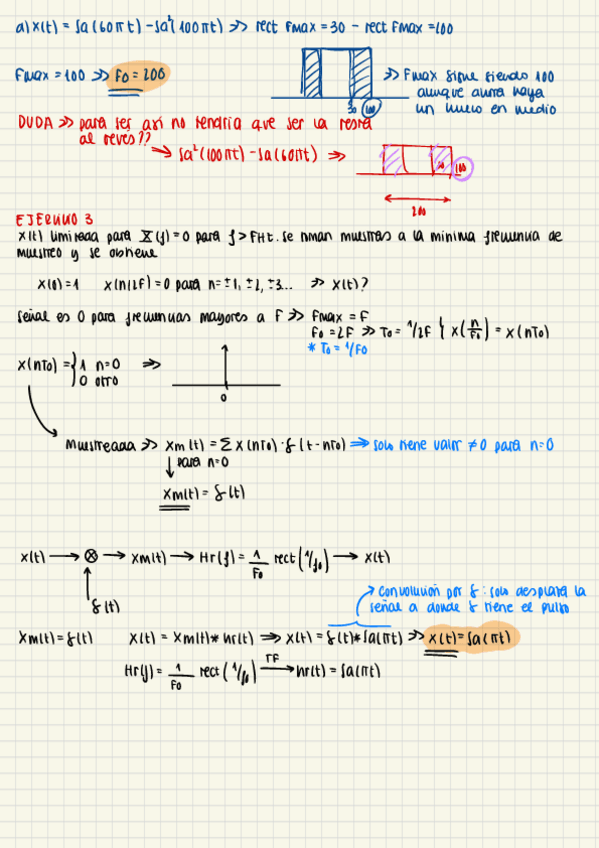 a) x(t) = Sa(60πt) - Sa²(100πt) >> rect Fmax = 30 - rect Fmax = 100
Fmax = 100 >> Fo = 200
30 100
>> Fmax sigue siendo 100
aunque ahora haya
un hueco en medio
DUDA >> para ser así no tendría que ser la resta
al revés??
→ Sa²(100πt) - Sa(60πt) ⇒
30 100
200
EJERCICIO 3
x(t) limitada para X(f) = 0 para f > F Ht. Se toman muestras a la mínima frecuencia de
muestreo y se obtiene
x(0) = 1 x(n/2F) = 0 para n = ±1, ±2, ±3... >> x(t)?
Señal es 0 para frecuencias mayores a F >> Fmax = F
Fo = 2F >> To = 1/2F { x(n/Fo) = x(nTo)
* To = 1/Fo
x(nTo) = { 1 n=0 ⇒
0 otro
0
Muestreada >> xm(t) = Σ x(nTo) · δ(t-nTo) ⇒ solo tiene valor ≠ 0 para n=0
↓ para n=0
xm(t) = δ(t)
x(t) → ⊗ → xm(t) → Hr(f) = 1/Fo rect(1/fo) → x(t)
δ(t)
→ Convolución por δ: solo desplaza la
señal a donde δ tiene el pulso
xm(t) = δ(t) x(t) = xm(t) * hr(t) ⇒ x(t) = δ(t) * Sa(πt) >> x(t) = Sa(πt)
Hr(f) = 1/Fo rect(1/fo) TF→ hr(t) = Sa(πt)